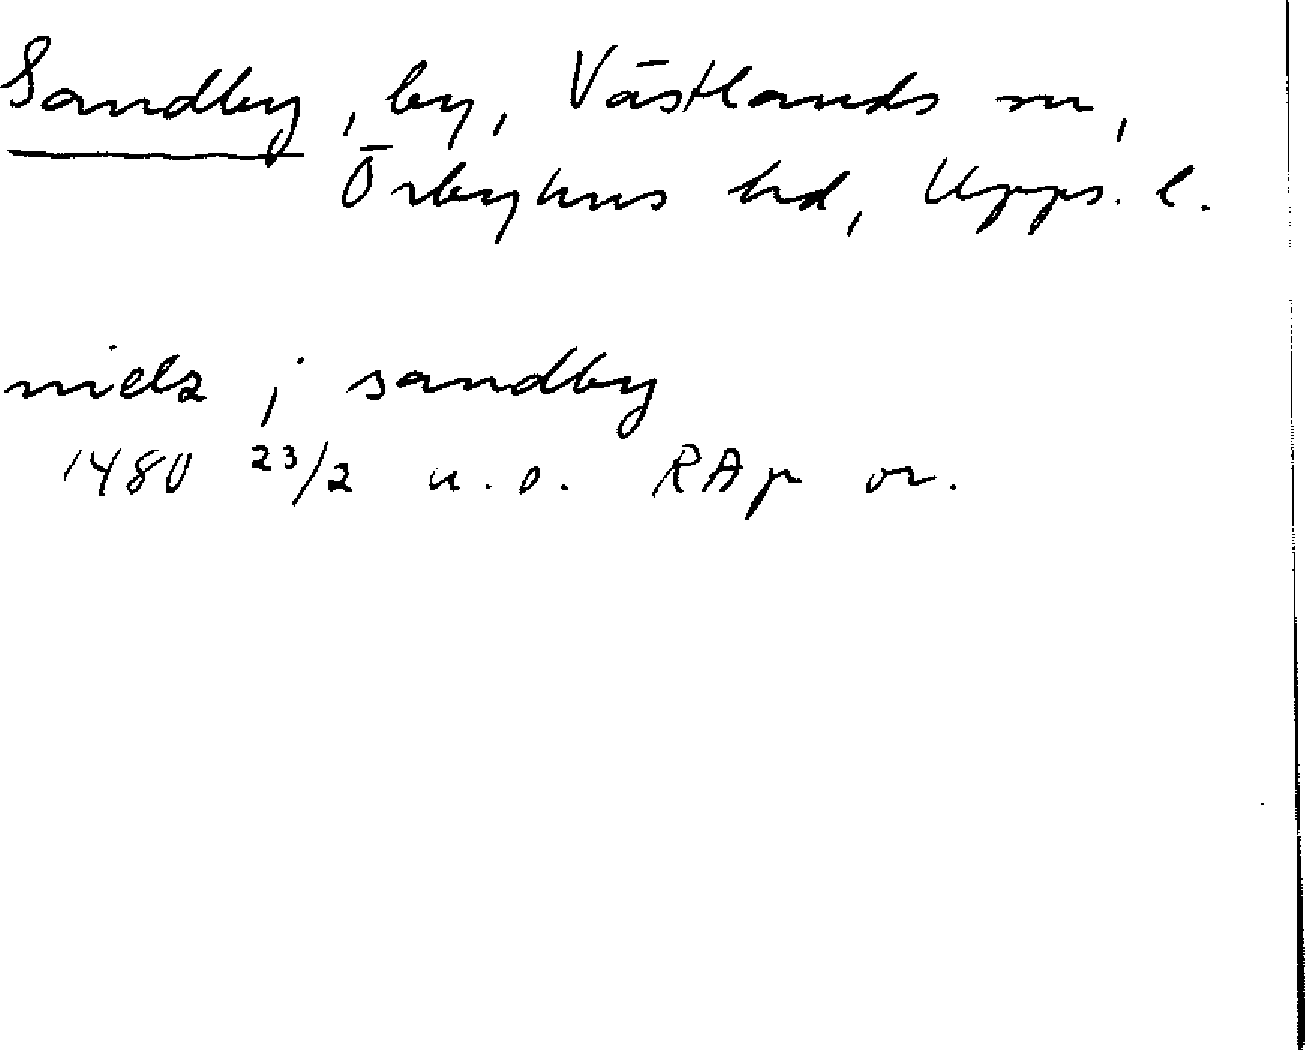 Sandby, by, Västlands sn,
Örbyhus hd, Upps. l.
niels j sandby
1480 23/2 u.o. RAp or.